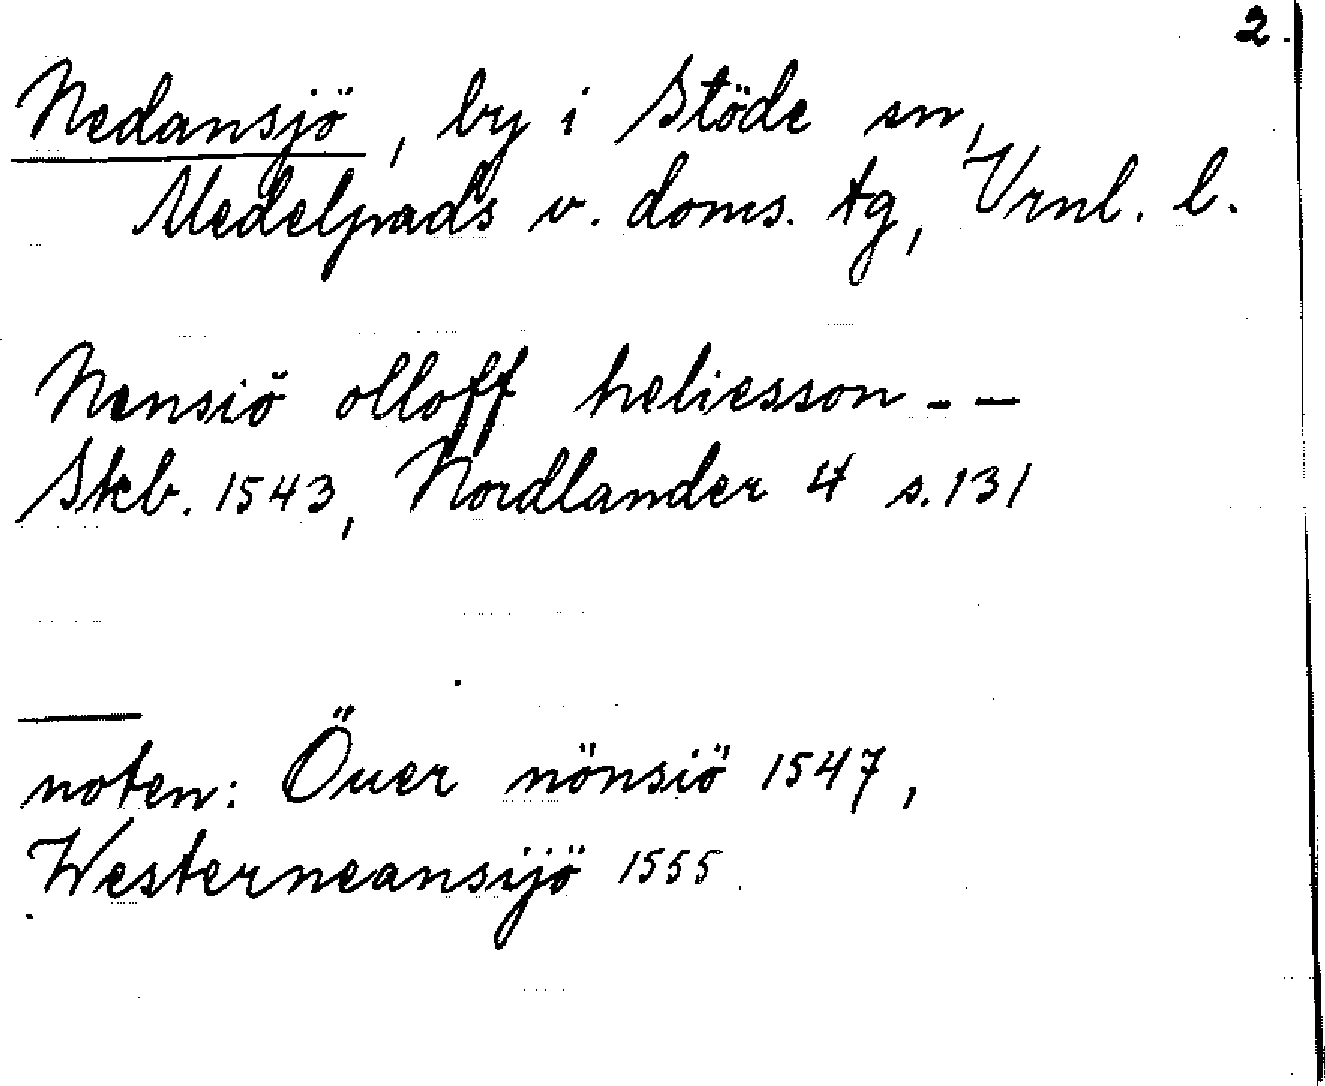 2.
Nedansjö, by i Stöde sn,
Medelpads v. doms. tg, Vrnl. l.
Nensiö olloff heliesson - -
Skb. 1543, Nordlander 4 s. 131
noten: Öuer nönsiö 1547,
Westerneansijö 1555